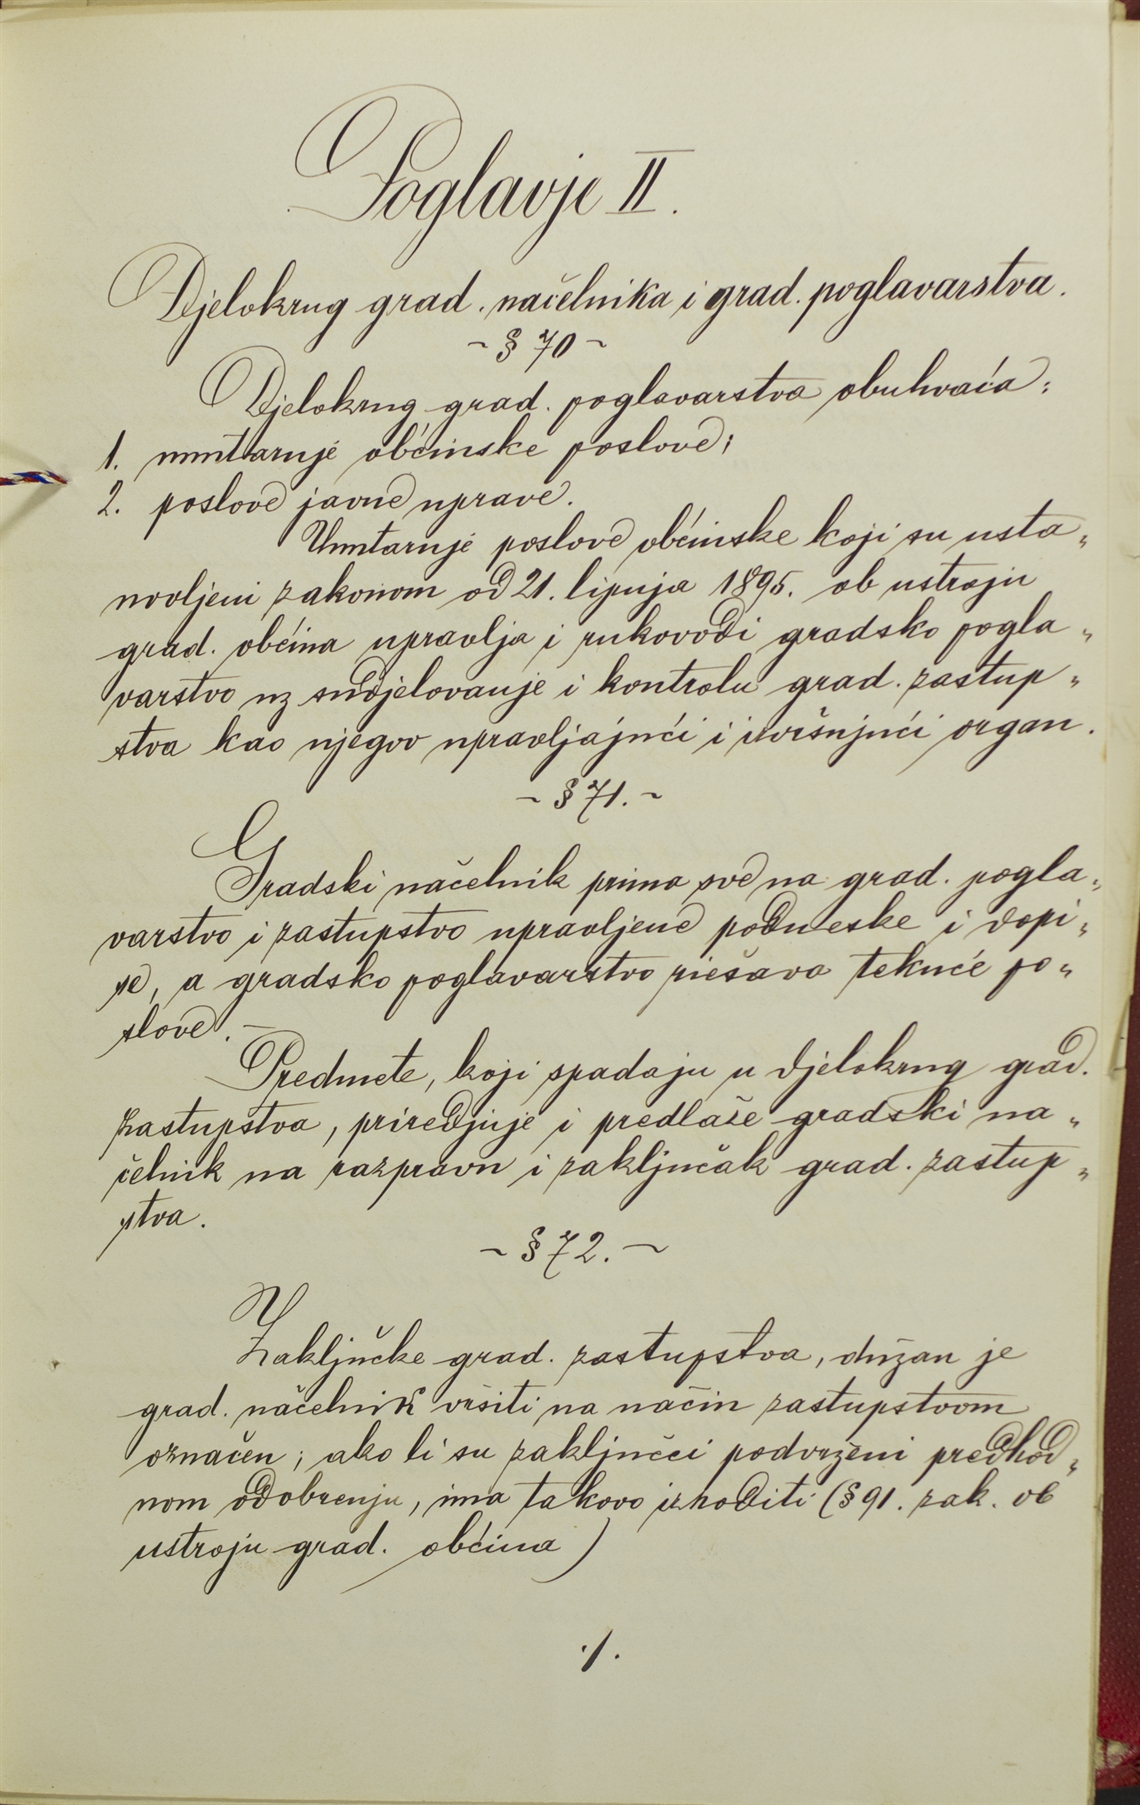 Poglavje II.
Djelokrug grad. načelnika i grad. poglavarstva.
~ § 70 ~
Djelokrug grad. poglavarstva obuhvaća:
1. unutarnje obćinske poslove;
2. poslove javne uprave.
Unutarnje poslove obćinske koji su usta„
novljeni zakonom od 21. lipnja 1895. ob ustroju
grad. obćina upravlja i rukovodi gradsko pogla„
varstvo uz sudjelovanje i kontrolu grad. zastup„
stva kao njegov upravljajući i izvršujući organ.
~ § 71. ~
Gradski načelnik prima sve na grad. pogla„
varstvo i zastupstvo upravljene podneske i dopi„
se, a gradsko poglavarstvo riešava tekuće po„
slove. —
Predmete, koji spadaju u djelokrug grad.
zastupstva, priredjuje i predlaže gradski na„
čelnik na razpravu i zaključak grad. zastup„
stva.
~ § 72. ~
Zaključke grad. zastupstva, dužan je
grad. načelnik vršiti na način zastupstvom
označen; ako li su zaključci podvrženi predhod„
nom odobrenju, ima takovo izhoditi (§ 91. zak. ob
ustroju grad. obćina)
./.